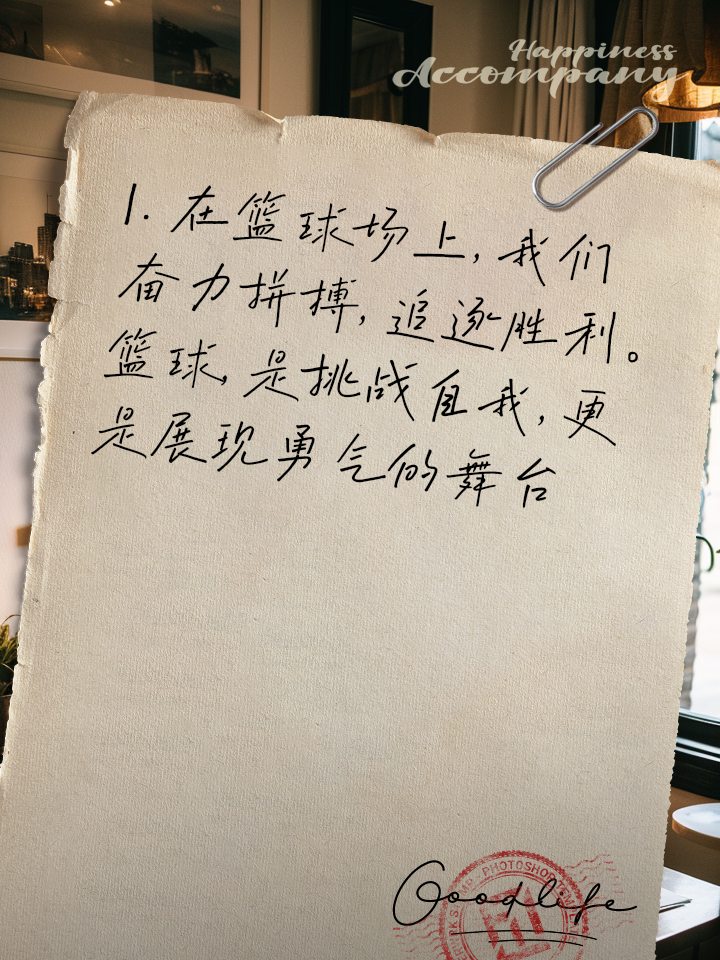 Happiness
Accompany
1. 在篮球场上, 我们
奋力拼搏, 追逐胜利。
篮球, 是挑战自我, 更
是展现勇气的舞台
PHOTOSHOP
Goodlife